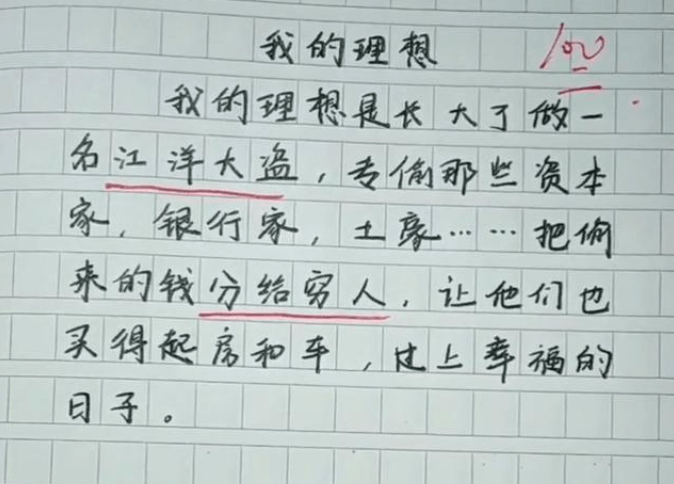 我的理想 100
我的理想是长大了做一
名江洋大盗，专偷那些资本
家，银行家，土豪……把偷
来的钱分给穷人，让他们也
买得起房和车，过上幸福的
日子。